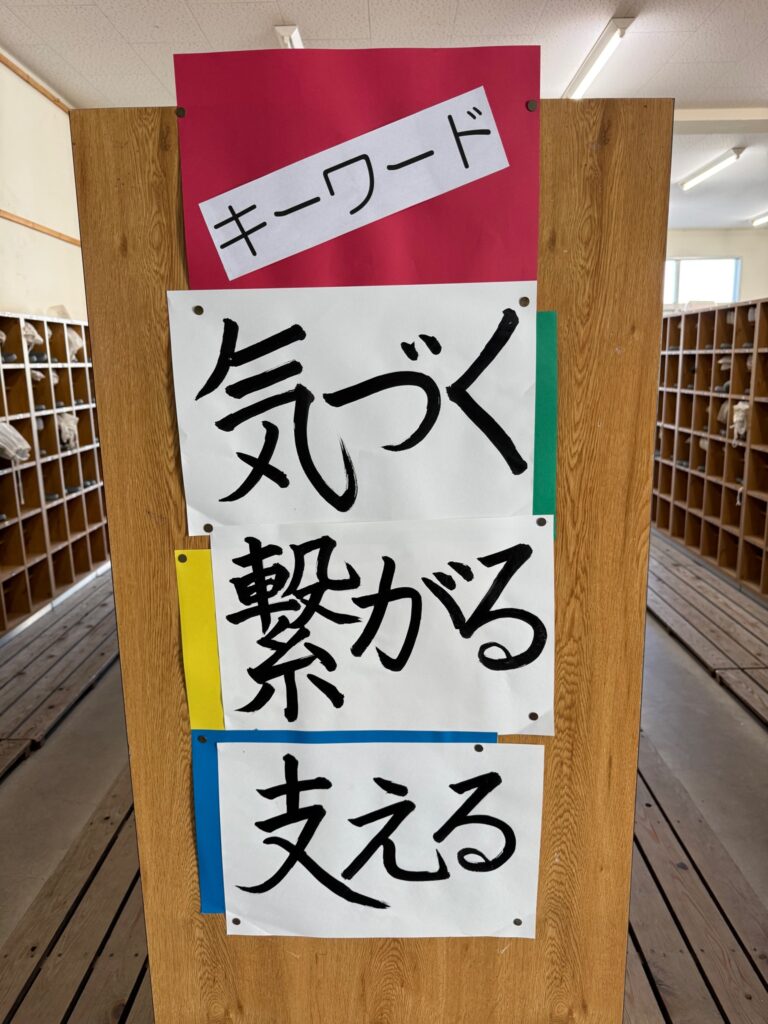 キーワード
気づく
繋がる
支える